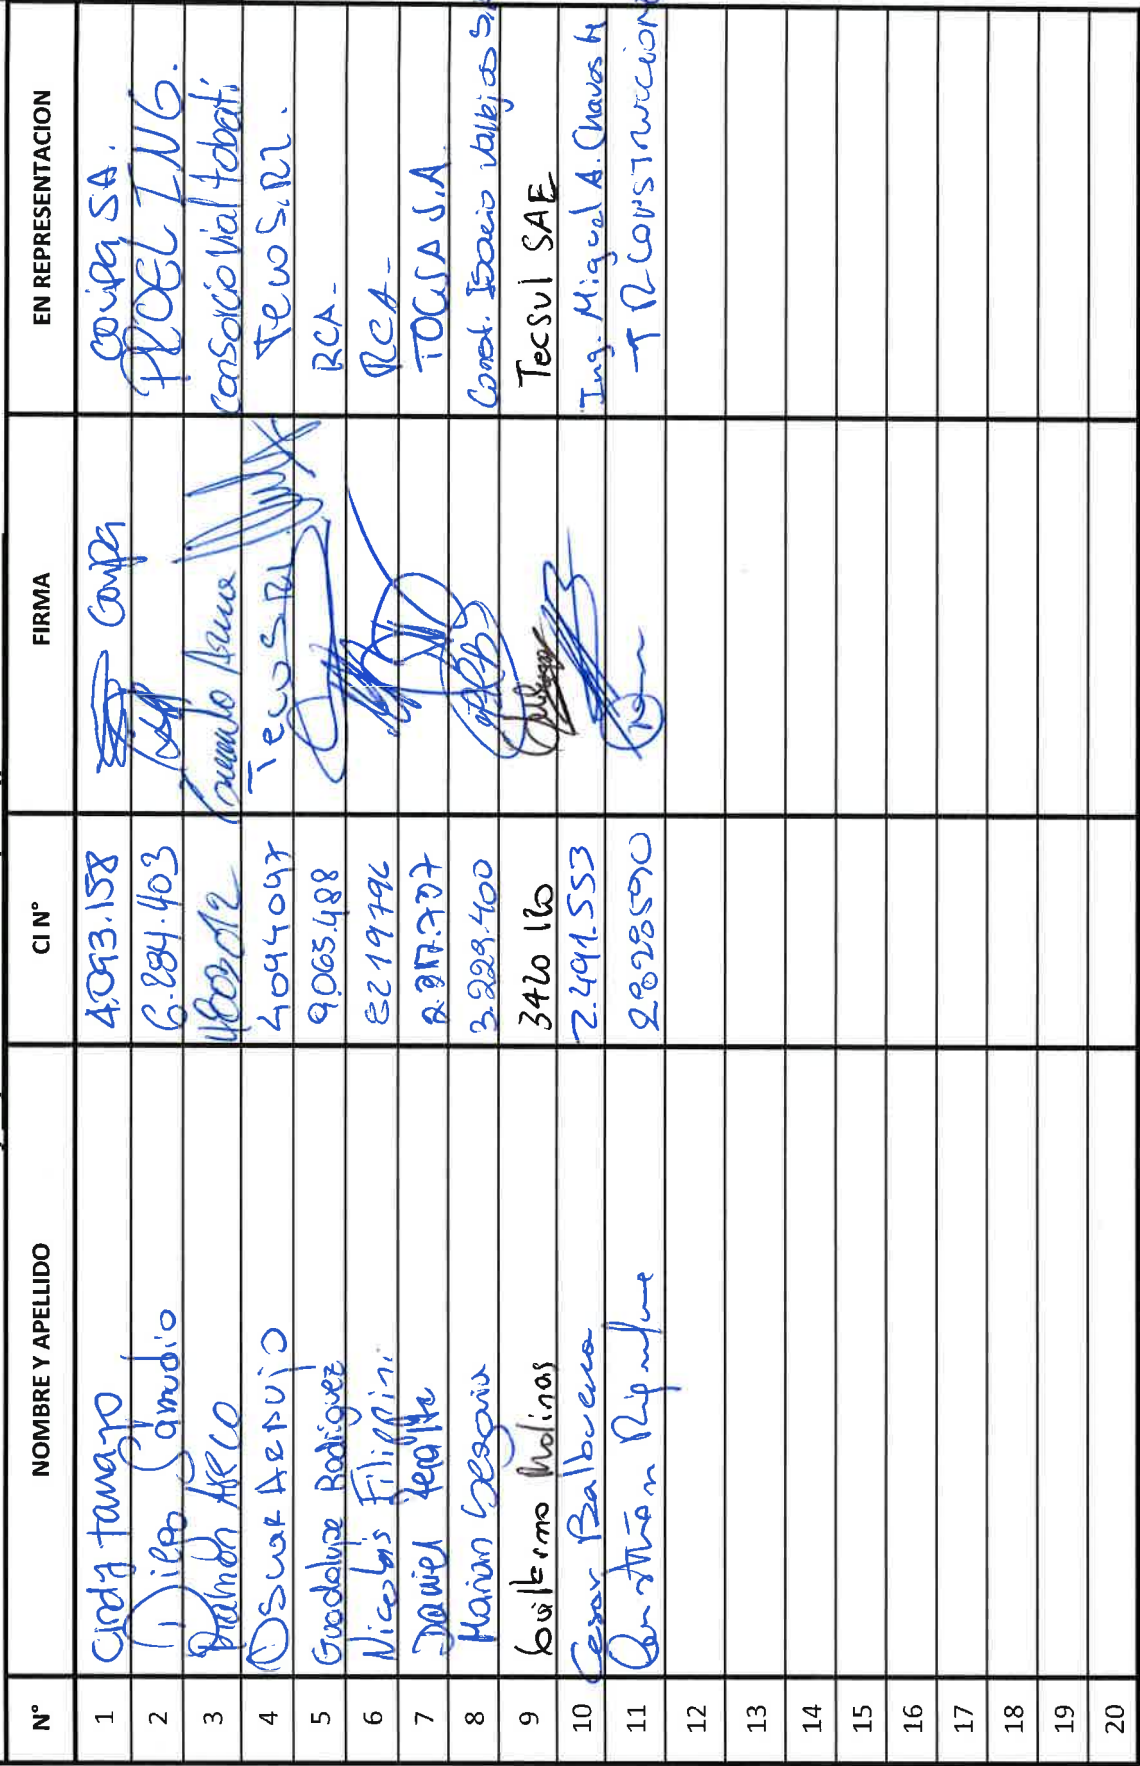 N° NOMBRE Y APELLIDO CI N° FIRMA EN REPRESENTACION
1 Cindy Tamayo 4.093.158 Coipa Coipa SA.
2 Diego Samudio 6.284.403 PROEL ING.
3 Ramón Arco Consorcio Vial Tobatí
4 Oscar Arnujo 4094097 Tecno S.R.L. Tecno S.R.L.
5 Guadalupe Rodriguez 9.065.488 RCA-
6 Nicolás Filippini 8219796 RCA-
7 Daniel Peralta TOCSA S.A.
8 Marian Segovia 3.229.400 Const. Isacio Vallejos S.A
9 Guillermo Molinas 3420120 Tecsul SAE
10 Cesar Balbuena 2.491.553 Ing. Miguel A. Chavez H
11 2828590 TR Construccion
12
13
14
15
16
17
18
19
20